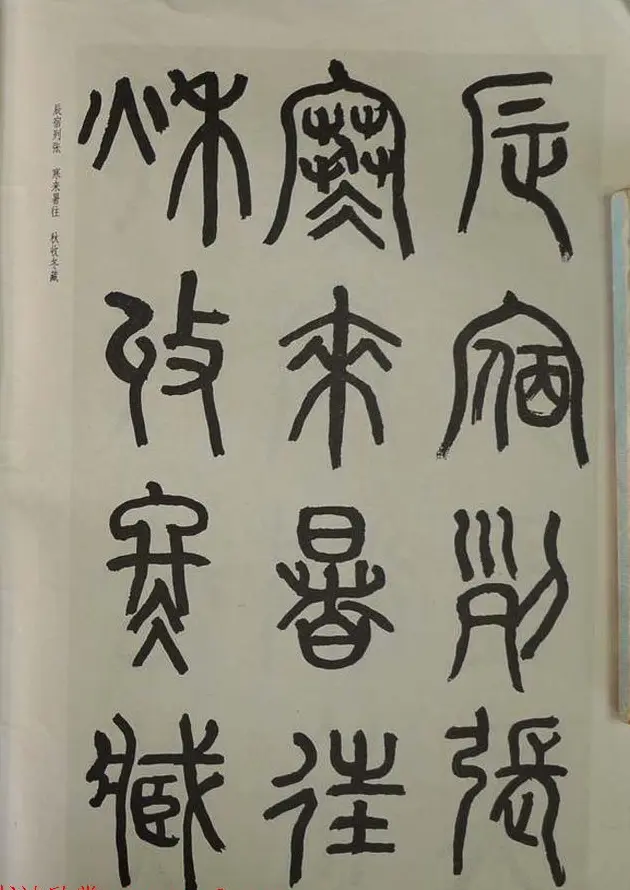 辰宿列张
寒来暑往
秋收冬藏
辰宿列张 寒来暑往 秋收冬藏